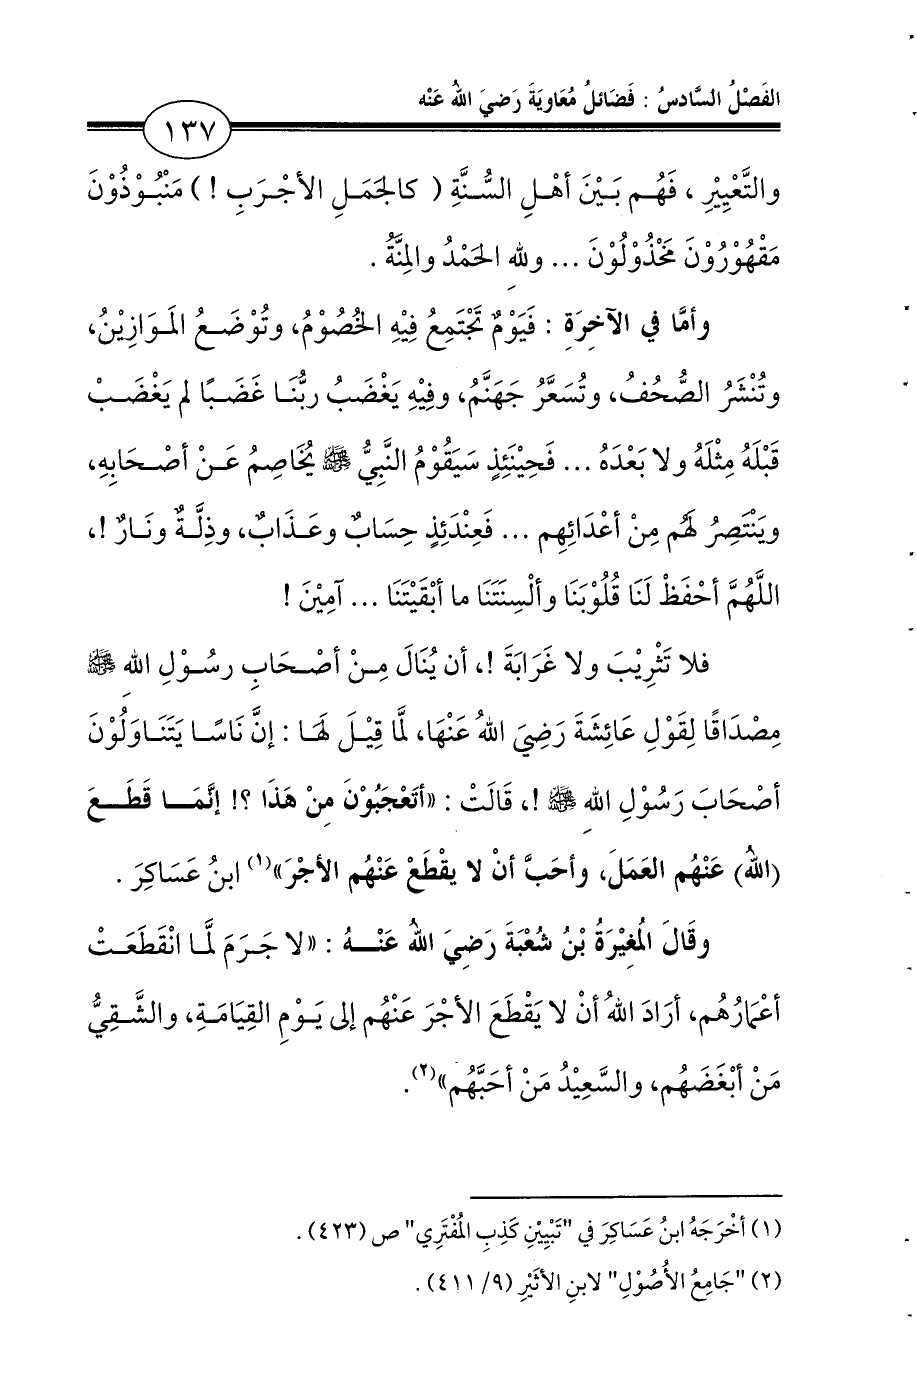 الفَصْلُ السَّادسُ : فَضَائلُ مُعَاويَةَ رَضيَ اللهُ عَنْه
١٣٧
والتَّعْيِيْرِ ، فَهُم بَيْنَ أهْلِ السُّنَّةِ ( كالجَمَلِ الأجْرَبِ ! ) مَنْبُوْذُوْنَ
مَقْهُوْرُوْنَ مَخْذُولُوْنَ ... ولله الحَمْدُ والمِنَّةُ .
وأمَّا في الآخِرَةِ : فَيَوْمٌ تَجْتَمِعُ فِيْهِ الخُصُوْمُ، وتُوْضَعُ المَوَازِيْنُ،
وتُنْشَرُ الصُّحُفُ، وتُسَعَّرُ جَهَنَّمُ، وفِيْهِ يَغْضَبُ ربُّنَا غَضَبًا لم يَغْضَبْ
قَبْلَهُ مِثْلَهُ ولا بَعْدَهُ ... فَحِيْنَئِذٍ سَيَقُوْمُ النَّبِيُّ ﷺ يُخَاصِمُ عَنْ أصْحَابِهِ،
ويَنْتَصِرُ لَهُم مِنْ أعْدَائِهِم ... فَعِنْدَئِذٍ حِسَابٌ وعَذَابٌ، وذِلَّةٌ ونَارٌ !،
اللَّهُمَّ أحْفَظْ لَنَا قُلُوْبَنَا وألْسِنَتَنَا ما أبْقَيْتَنَا ... آمِيْنَ !
فلا تَثْرِيْبَ ولا غَرَابَةَ !، أن يُنَالَ مِنْ أصْحَابِ رسُوْلِ الله ﷺ
مِصْدَاقًا لِقَوْلِ عَائِشَةَ رَضِيَ اللهُ عَنْهَا، لَمَّا قِيْلَ لَهَا : إنَّ نَاسًا يَتَنَاوَلُوْنَ
أصْحَابَ رَسُوْلِ الله ﷺ !، قَالَتْ : «أتَعْجَبُوْنَ مِنْ هَذَا ؟! إنَّمَا قَطَعَ
(اللهُ) عَنْهُم العَمَلَ، وأحَبَّ أنْ لا يقْطَعْ عَنْهُم الأجْرَ»(١) ابنُ عَسَاكِرَ .
وقَالَ المُغِيْرَةُ بْنُ شُعْبَةَ رَضِيَ اللهُ عَنْهُ : «لا جَرَمَ لَمَّا انْقَطَعَتْ
أعْمَارُهُم، أرَادَ اللهُ أنْ لا يَقْطَعَ الأجْرَ عَنْهُم إلى يَوْمِ القِيَامَةِ، والشَّقِيُّ
مَنْ أبْغَضَهُم، والسَّعِيْدُ مَنْ أحَبَّهُم»(٢).
(١) أخْرَجَهُ ابنُ عَسَاكِرَ في "تَبْيِيْنِ كَذِبِ المُفْتَرِي" ص (٤٢٣) .
(٢) "جَامِعُ الأُصُوْلِ" لابنِ الأثَيْرِ (٩/ ٤١١) .